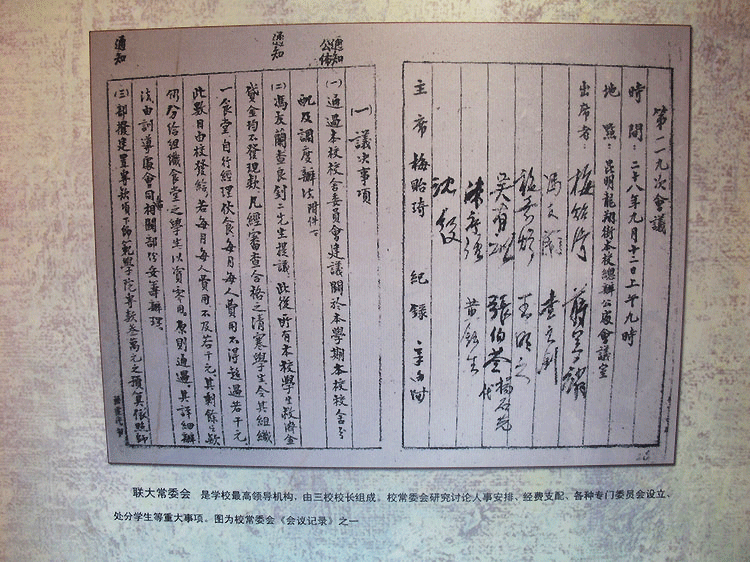 第一一九次會議
時間：二十八年九月十二日上午九時
地點：昆明龍翔街本校總辦公處會議室
出席者：梅貽琦 蔣夢麟
馮友蘭 查良釗
施嘉煬 王明之
吳有訓 張伯苓 楊石先代
陳序經 黃鈺生
沈履
主席 梅貽琦 紀錄
通知
公佈
(一)議決事項
(一)通過本校校舍委員會建議關於本學期本校校舍分
配及調度辦法附件一
通知
(二)馮友蘭查良釗二先生提議此後所有本校學生救濟金
貸金均不發現款凡經審查合格之清寒學生令其組織
一食堂自行經理伙食每月每人費用不得超過若干元
此數目由校發給若每月每人費用不及若干元其剩餘之款
仍分給組織食堂之學生以資零用原則通過其詳細辦
法由訓導處會同相關部份妥籌辦理
通知
(三)部撥建置專款項下師範學院專款叁萬元之預算依照師
联大常委会 是学校最高领导机构，由三校校长组成。校常委会研究讨论人事安排、经费支配、各种专门委员会设立、
处分学生等重大事项。图为校常委会《会议记录》之一